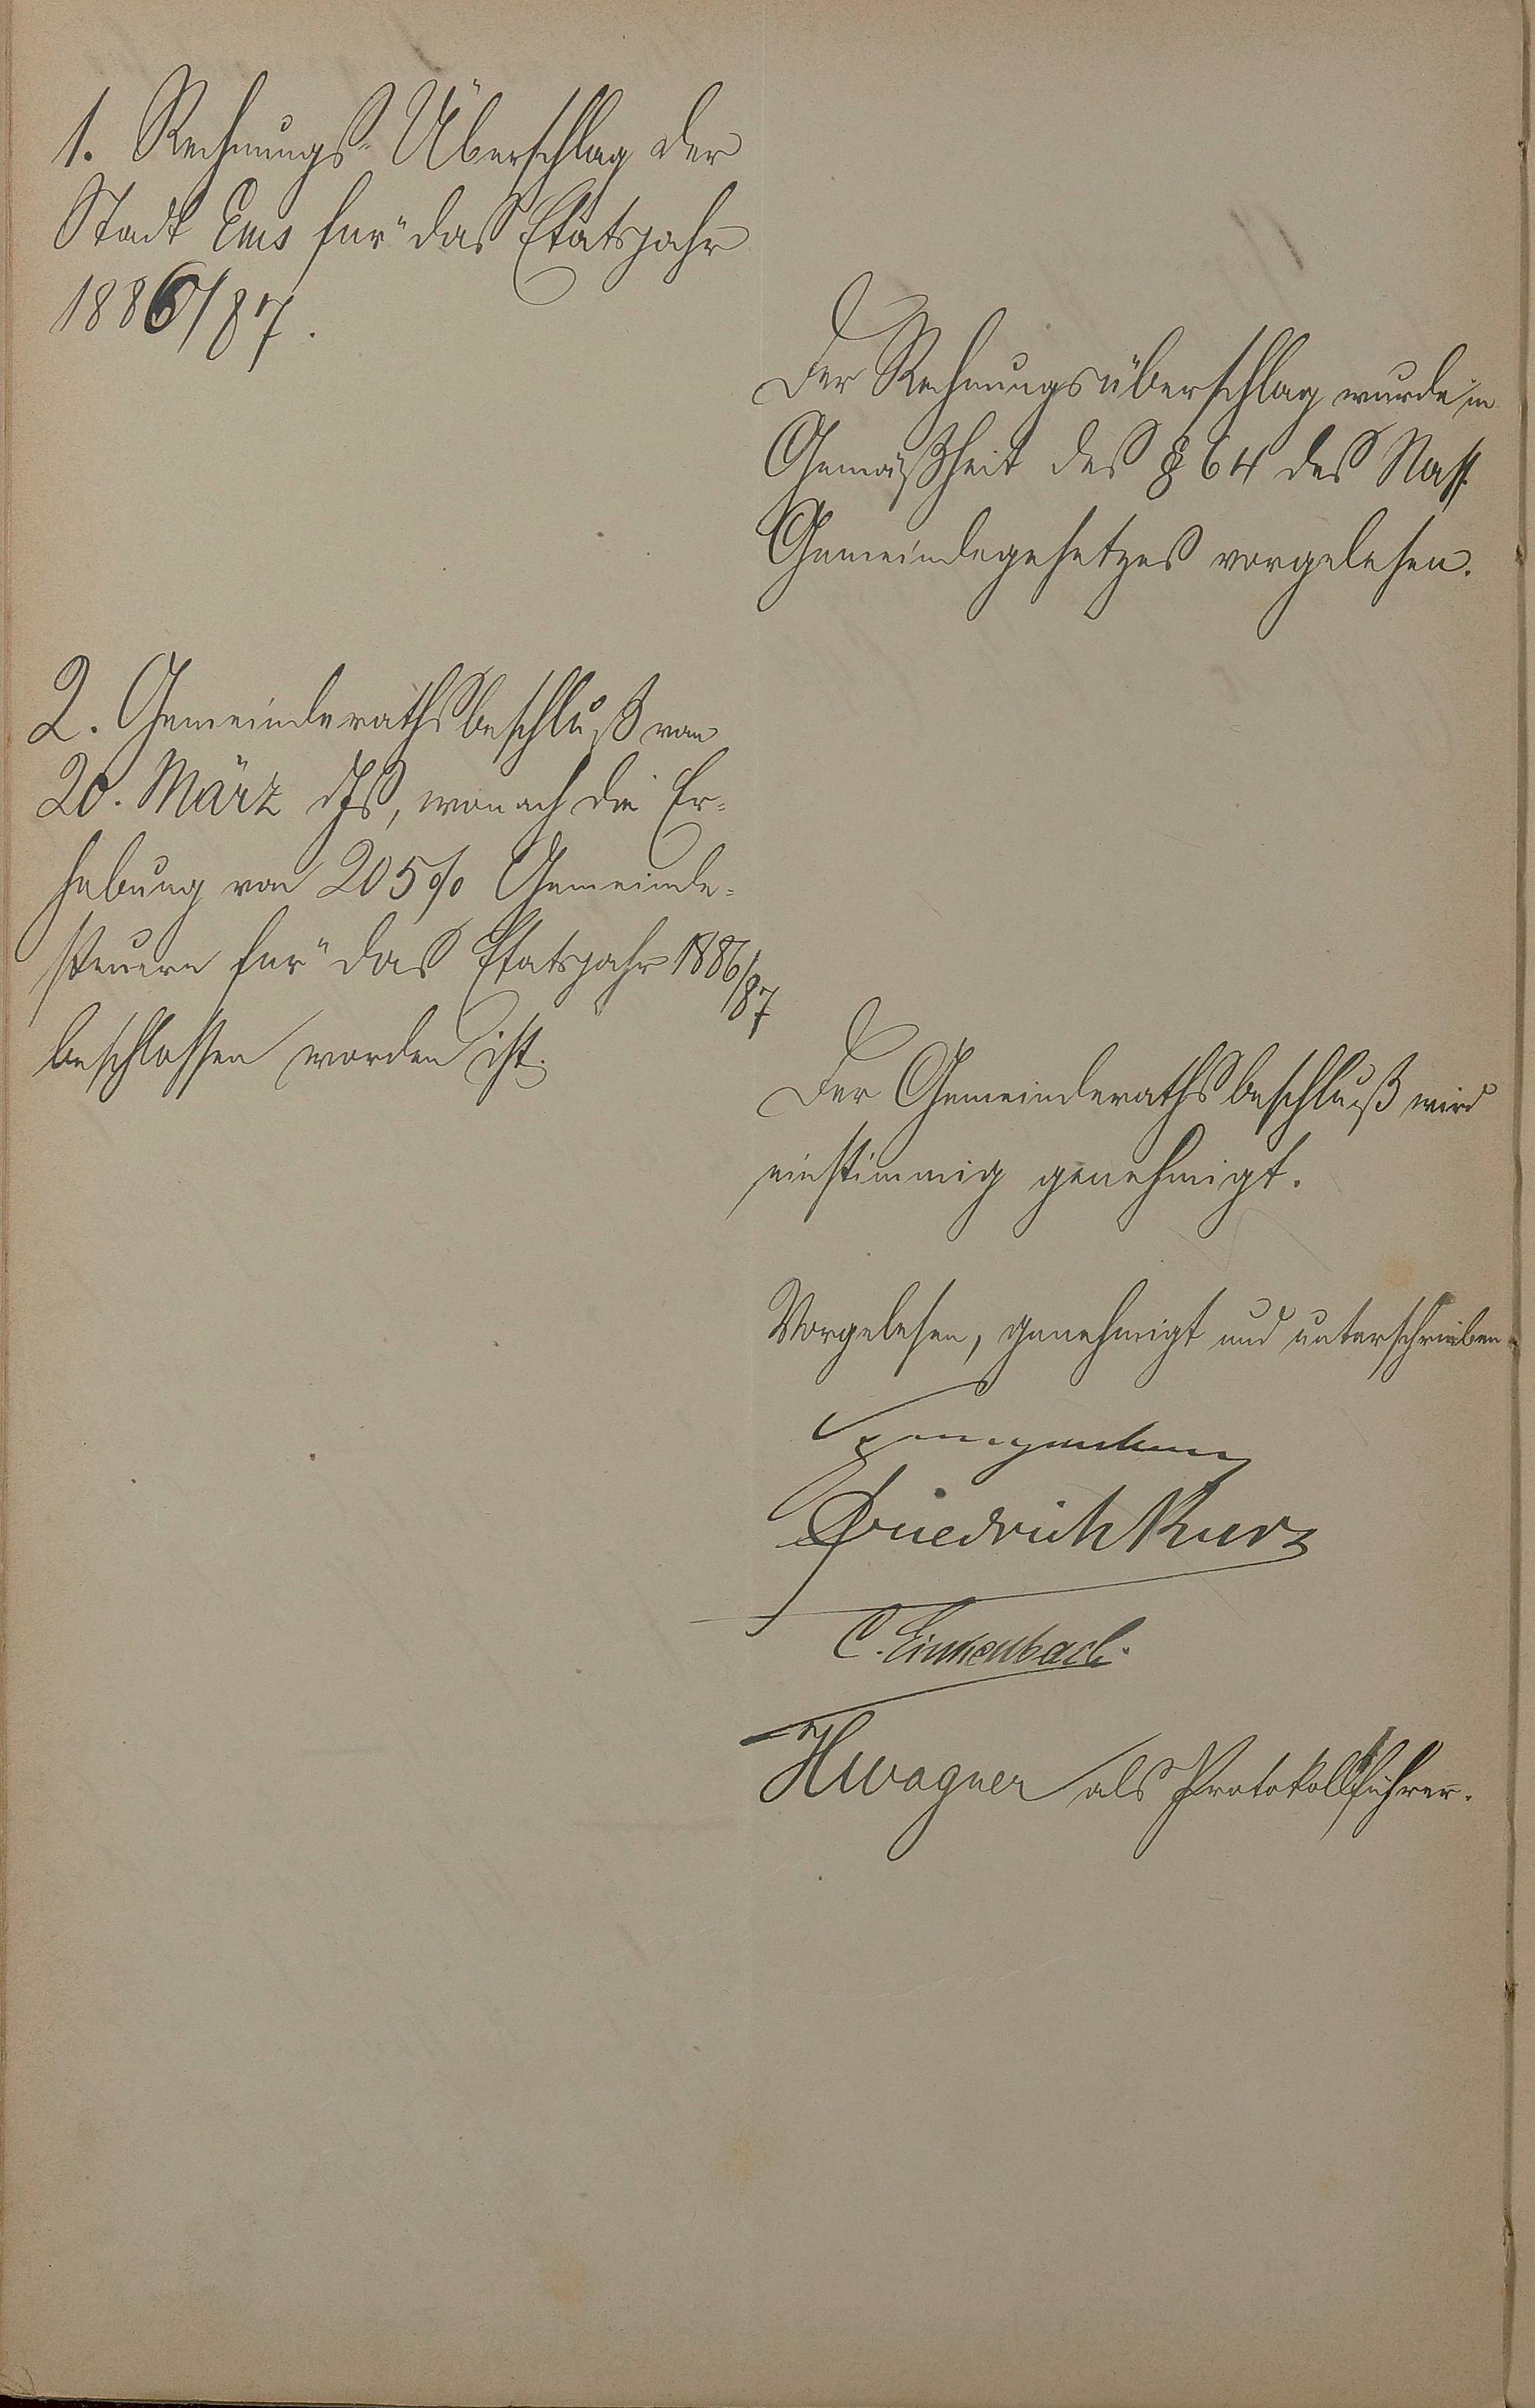 1. Rechnungs-Überschlag der
Stadt Ems für das Etatsjahr
1886/87.
Der Rechnungsüberschlag wurde in
Gemäßheit des § 64 des Nass.
Gemeindegesetzes vorgelesen.
2. Gemeinderathsbeschluß vom
20. März d. Js, wonach die Er-
hebung von 205% Gemeinde-
steuern für das Etatsjahr 1886/87
beschlossen worden ist.
Der Gemeinderathsbeschluß wird
einstimmig genehmigt.
Vorgelesen, genehmigt und unterschrieben.
Friedrich Kurz
C. Linkenbach.
HWagner als Protokollführer.